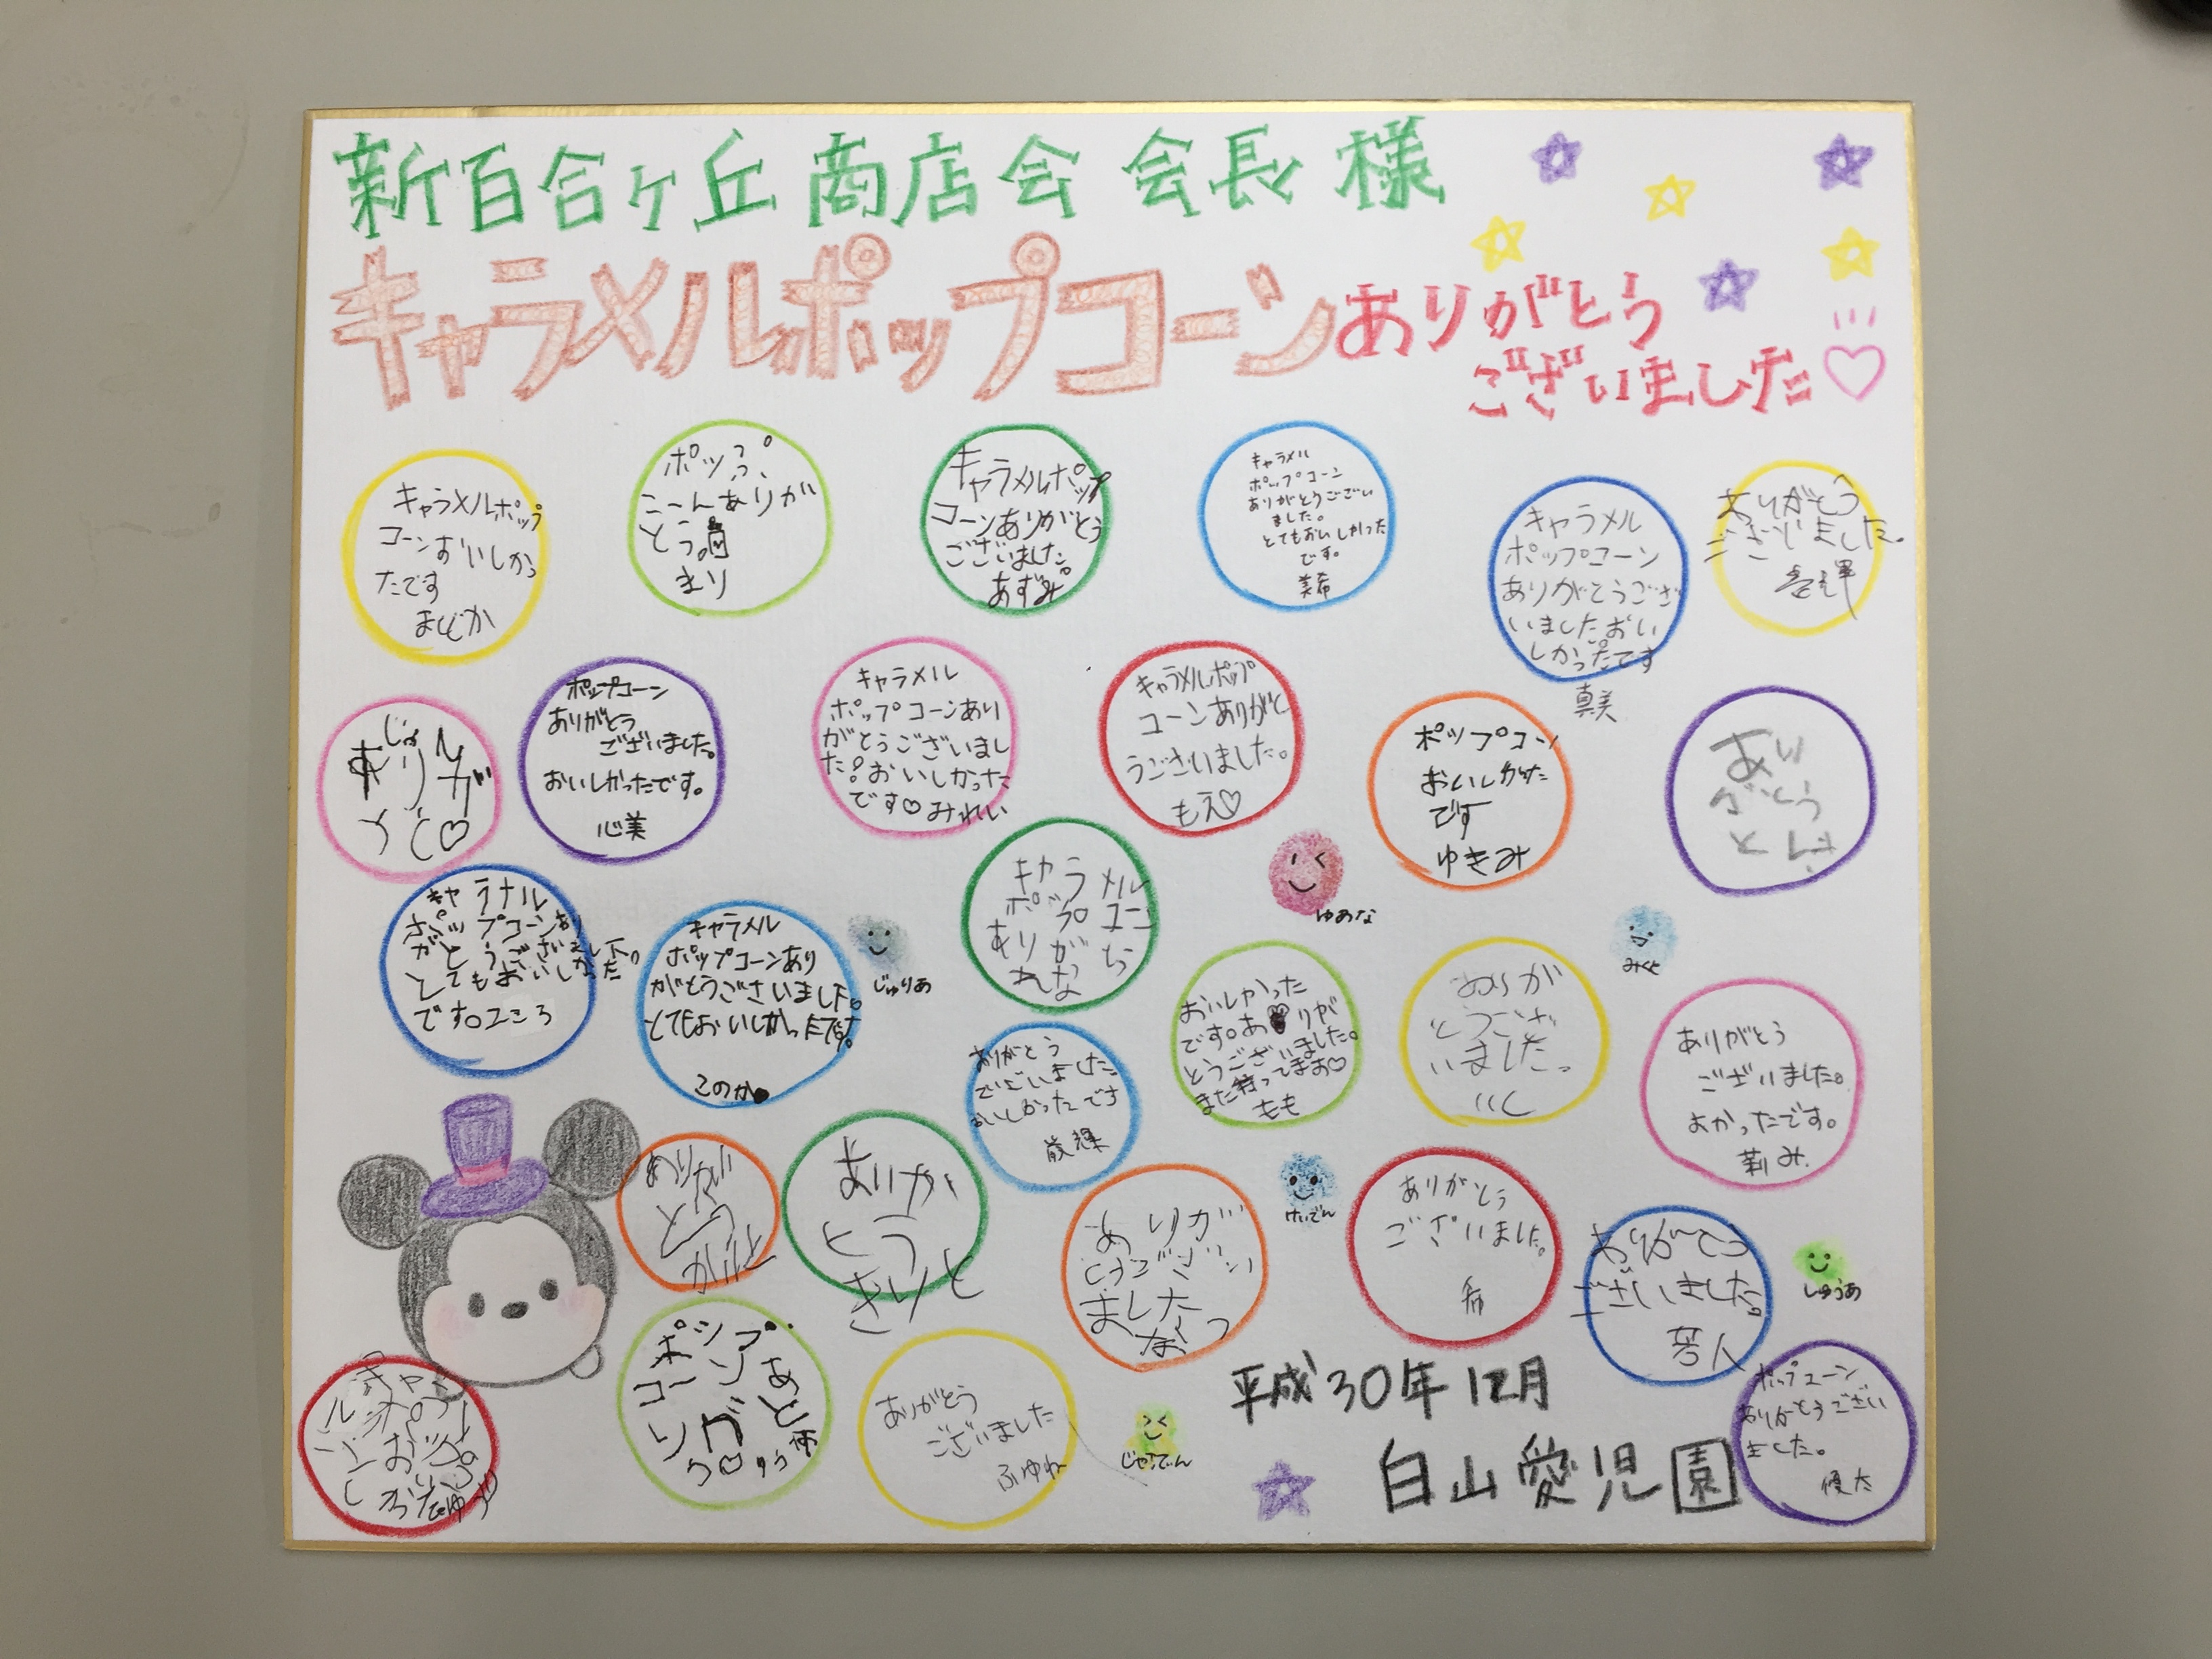 新百合ヶ丘 商店会 会長 様
キャラメルポップコーンありがとう
ございました♡
キャラメルポップ
コーンおいしかっ
たです
まどか
ポップ
こーんありが
とう。
まり
キャラメルポップ
コーンありがとう
ございました。
あずみ
キャラメル
ポップコーン
ありがとうござい
ました。
とてもおいしかった
です。
美希
キャラメル
ポップコーン
ありがとうござ
いましたおい
しかったです
真美
ありがとう
ございました。
ポップコーン
ありがとう
ございました。
おいしかったです。
心美
キャラメル
ポップコーンあり
がとうございまし
た。おいしかった
です♡みれい
キャラメルポップ
コーンありがと
うございました。
もえ♡
ポップコン
おいしかった
です
ゆきみ
あり
がとう
キャラナル
ポップコーンあり
がとうございました。
とてもおいしかった
です。
キャラメル
ポップコーンあり
がとうございました。
とてもおいしかったです。
このか
じゅりあ
キャラメル
ポップコン
ありが
れな
ゆあな
おいしかった
です。あ♥りが
とうございました。
また待ってます♡
もも
ありが
とうござ
いました。
みくと
ありがとう
ございました。
よかったです。
莉み
ありがとう
ございました
おいしかったです
ありがと
ありが
とう
きりと
ありが
とうござい
ました
けいでん
ありがとう
ございました。
希
ありがとう
ございました。
しゅうあ
ポップ
コーン
ありがとう
ございました
ふゆね
平成30年12月
白山愛児園
ポップコーン
ありがとうござい
ました。
優太